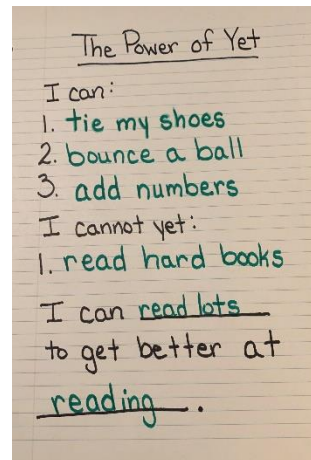 The Power of Yet
I can:
1. tie my shoes
2. bounce a ball
3. add numbers
I cannot yet:
1. read hard books
I can read lots
to get better at
reading.